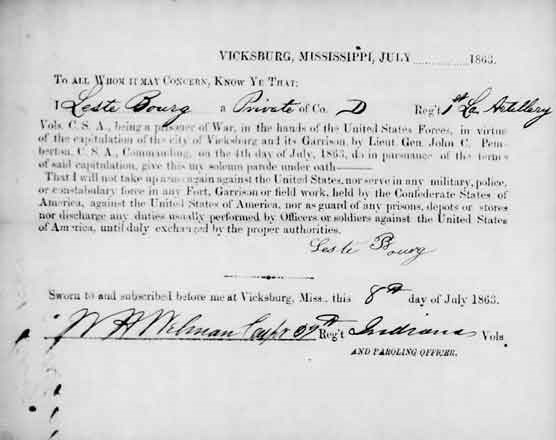 VICKSBURG, MISSISSIPPI, JULY ............ 1863.
TO ALL WHOM IT MAY CONCERN, KNOW YE THAT:
I Leste Bourg a Private of Co. D Reg't 1st La Artillery
Vols. C. S. A., being a prisoner of War, in the hands of the United States Forces, in virtue
of the capitulation of the city of Vicksburg and its Garrison, by Lieut. Gen. John C. Pem-
berton, C. S. A., Commanding, on the 4th day of July, 1863, do in pursuance of the terms
of said capitulation, give this my solemn parole under oath——
That I will not take up arms again against the United States, nor serve in any military, police,
or constabulary force in any Fort, Garrison or field work, held by the Confederate States of
America, against the United States of America, nor as guard of any prisons, depots or stores
nor discharge any duties usually performed by Officers or soldiers against the United States
of America, until duly exchanged by the proper authorities.
Leste Bourg
Sworn to and subscribed before me at Vicksburg, Miss., this 8th day of July 1863.
W H Welman Capt Reg't Indiana Vols
AND PAROLING OFFICER.